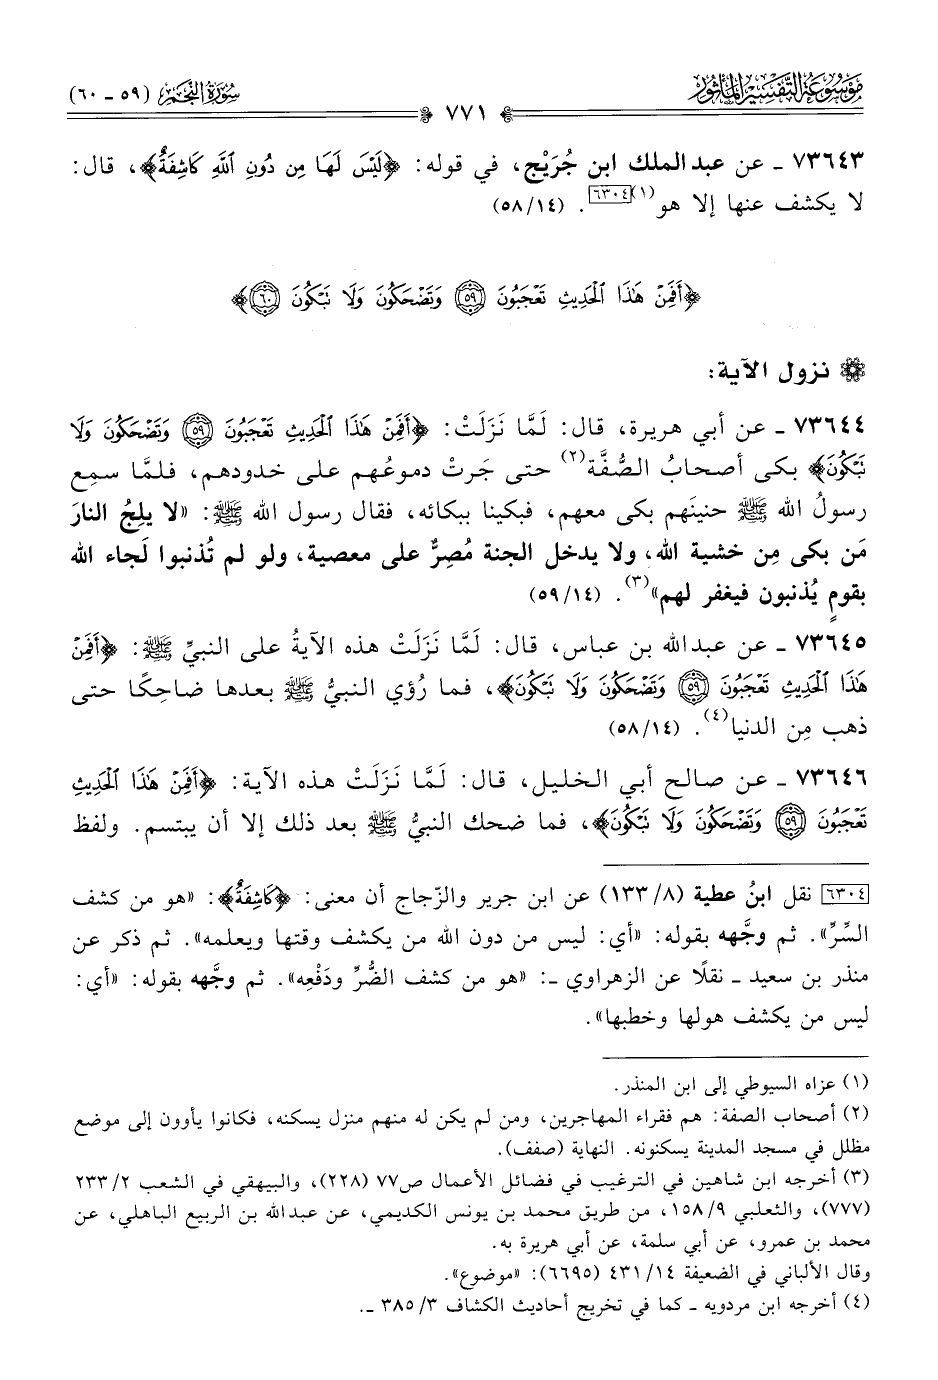 موسوعة التفسير المأثور
سورة النجم (٥٩ - ٦٠)
٧٧١
٧٣٦٤٣ - عن عبد الملك ابن جُرَيْج، في قوله: ﴿لَيْسَ لَهَا مِن دُونِ ٱللَّهِ كَاشِفَةٌ﴾، قال:
لا يكشف عنها إلا هو(١)[٦٣٠٤]. (١٤/٥٨)
﴿أَفَمِنْ هَٰذَا ٱلْحَدِيثِ تَعْجَبُونَ ٥٩ وَتَضْحَكُونَ وَلَا تَبْكُونَ ٦٠﴾
نزول الآية:
٧٣٦٤٤ - عن أبي هريرة، قال: لَمَّا نَزَلَتْ: ﴿أَفَمِنْ هَٰذَا ٱلْحَدِيثِ تَعْجَبُونَ ٥٩ وَتَضْحَكُونَ وَلَا
تَبْكُونَ﴾ بكى أصحابُ الصُّفَّة(٢) حتى جَرتْ دموعُهم على خدودهم، فلمَّا سمِع
رسولُ الله ﷺ حنينَهم بكى معهم، فبكينا ببكائه، فقال رسول الله ﷺ: «لا يلِجُ النارَ
مَن بكى مِن خشية الله، ولا يدخل الجنة مُصِرٌّ على معصية، ولو لم تُذنبوا لَجاء الله
بقومٍ يُذنبون فيغفر لهم»(٣). (١٤/٥٩)
٧٣٦٤٥ - عن عبدالله بن عباس، قال: لَمَّا نَزَلَتْ هذه الآيةُ على النبيِّ ﷺ: ﴿أَفَمِنْ
هَٰذَا ٱلْحَدِيثِ تَعْجَبُونَ ٥٩ وَتَضْحَكُونَ وَلَا تَبْكُونَ﴾، فما رُؤي النبيُّ ﷺ بعدها ضاحِكًا حتى
ذهب مِن الدنيا(٤). (١٤/٥٨)
٧٣٦٤٦ - عن صالح أبي الخليل، قال: لَمَّا نَزَلَتْ هذه الآية: ﴿أَفَمِنْ هَٰذَا ٱلْحَدِيثِ
تَعْجَبُونَ ٥٩ وَتَضْحَكُونَ وَلَا تَبْكُونَ﴾، فما ضحك النبيُّ ﷺ بعد ذلك إلا أن يبتسم. ولفظ
[٦٣٠٤] نقل ابنُ عطية (٨/ ١٣٣) عن ابن جرير والزّجاج أن معنى: ﴿كَاشِفَةٌ﴾: «هو من كشف
السِّرِّ». ثم وجَّهه بقوله: «أي: ليس من دون الله من يكشف وقتها ويعلمه». ثم ذكر عن
منذر بن سعيد - نقلًا عن الزهراوي -: «هو من كشف الضُّرِّ ودَفْعِه». ثم وجَّهه بقوله: «أي:
ليس من يكشف هولها وخطبها».
(١) عزاه السيوطي إلى ابن المنذر.
(٢) أصحاب الصفة: هم فقراء المهاجرين، ومن لم يكن له منهم منزل يسكنه، فكانوا يأوون إلى موضع
مظلل في مسجد المدينة يسكنونه. النهاية (صفف).
(٣) أخرجه ابن شاهين في الترغيب في فضائل الأعمال ص٧٧ (٢٢٨)، والبيهقي في الشعب ٢/ ٢٣٣
(٧٧٧)، والثعلبي ٩/ ١٥٨، من طريق محمد بن يونس الكديمي، عن عبدالله بن الربيع الباهلي، عن
محمد بن عمرو، عن أبي سلمة، عن أبي هريرة به.
وقال الألباني في الضعيفة ١٤/ ٤٣١ (٦٦٩٥): «موضوع».
(٤) أخرجه ابن مردويه - كما في تخريج أحاديث الكشاف ٣/ ٣٨٥ -.